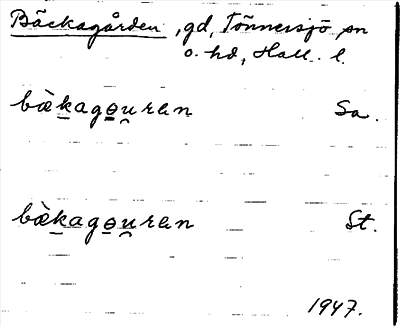 Bäckagården, gd, Tönnersjö sn
o. hd, Hall. l.
bæ̀kagɵu̯ren Sa.
bæ̀kagɵu̯ren St.
1947.